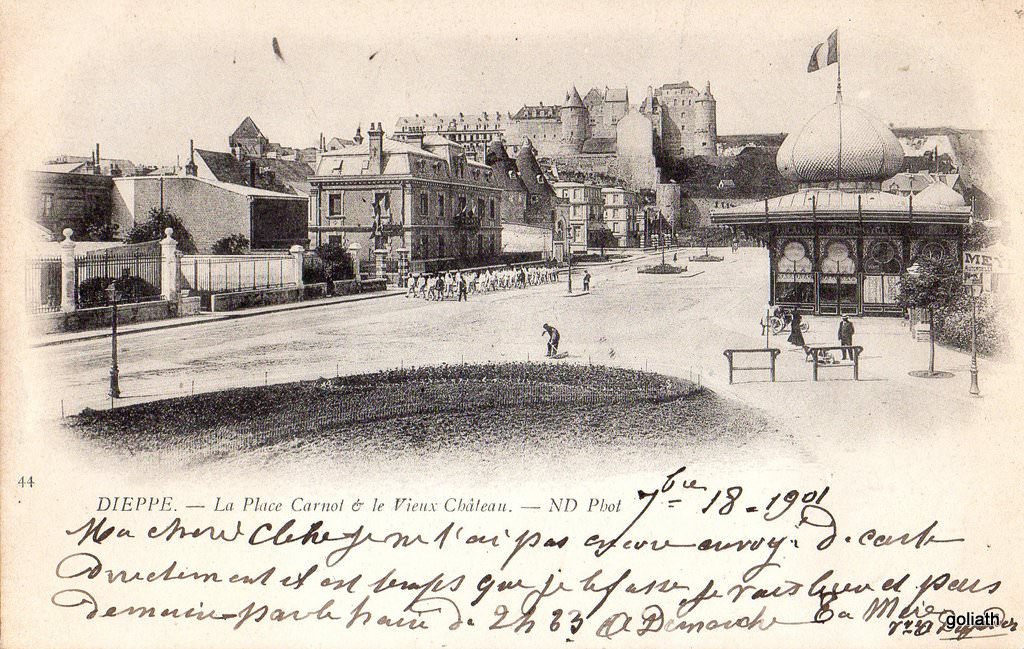 MEY
44
DIEPPE. — La Place Carnot & le Vieux Château. — ND Phot
7bre 18 - 1901
Ma chère je ne t'ai pas encore envoyé de carte
Directement et il est temps que je le fasse je vais bien et pars
Demain par le train de 2h 33 à Dimanche Ta Mère
goliath